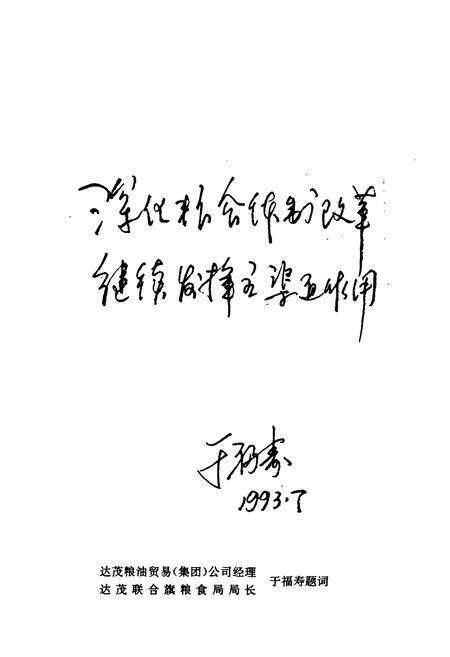 深化粮食体制改革
继续发挥主渠道作用
于福寿
1993.7
达茂粮油贸易(集团)公司经理
达茂联合旗粮食局局长
于福寿题词